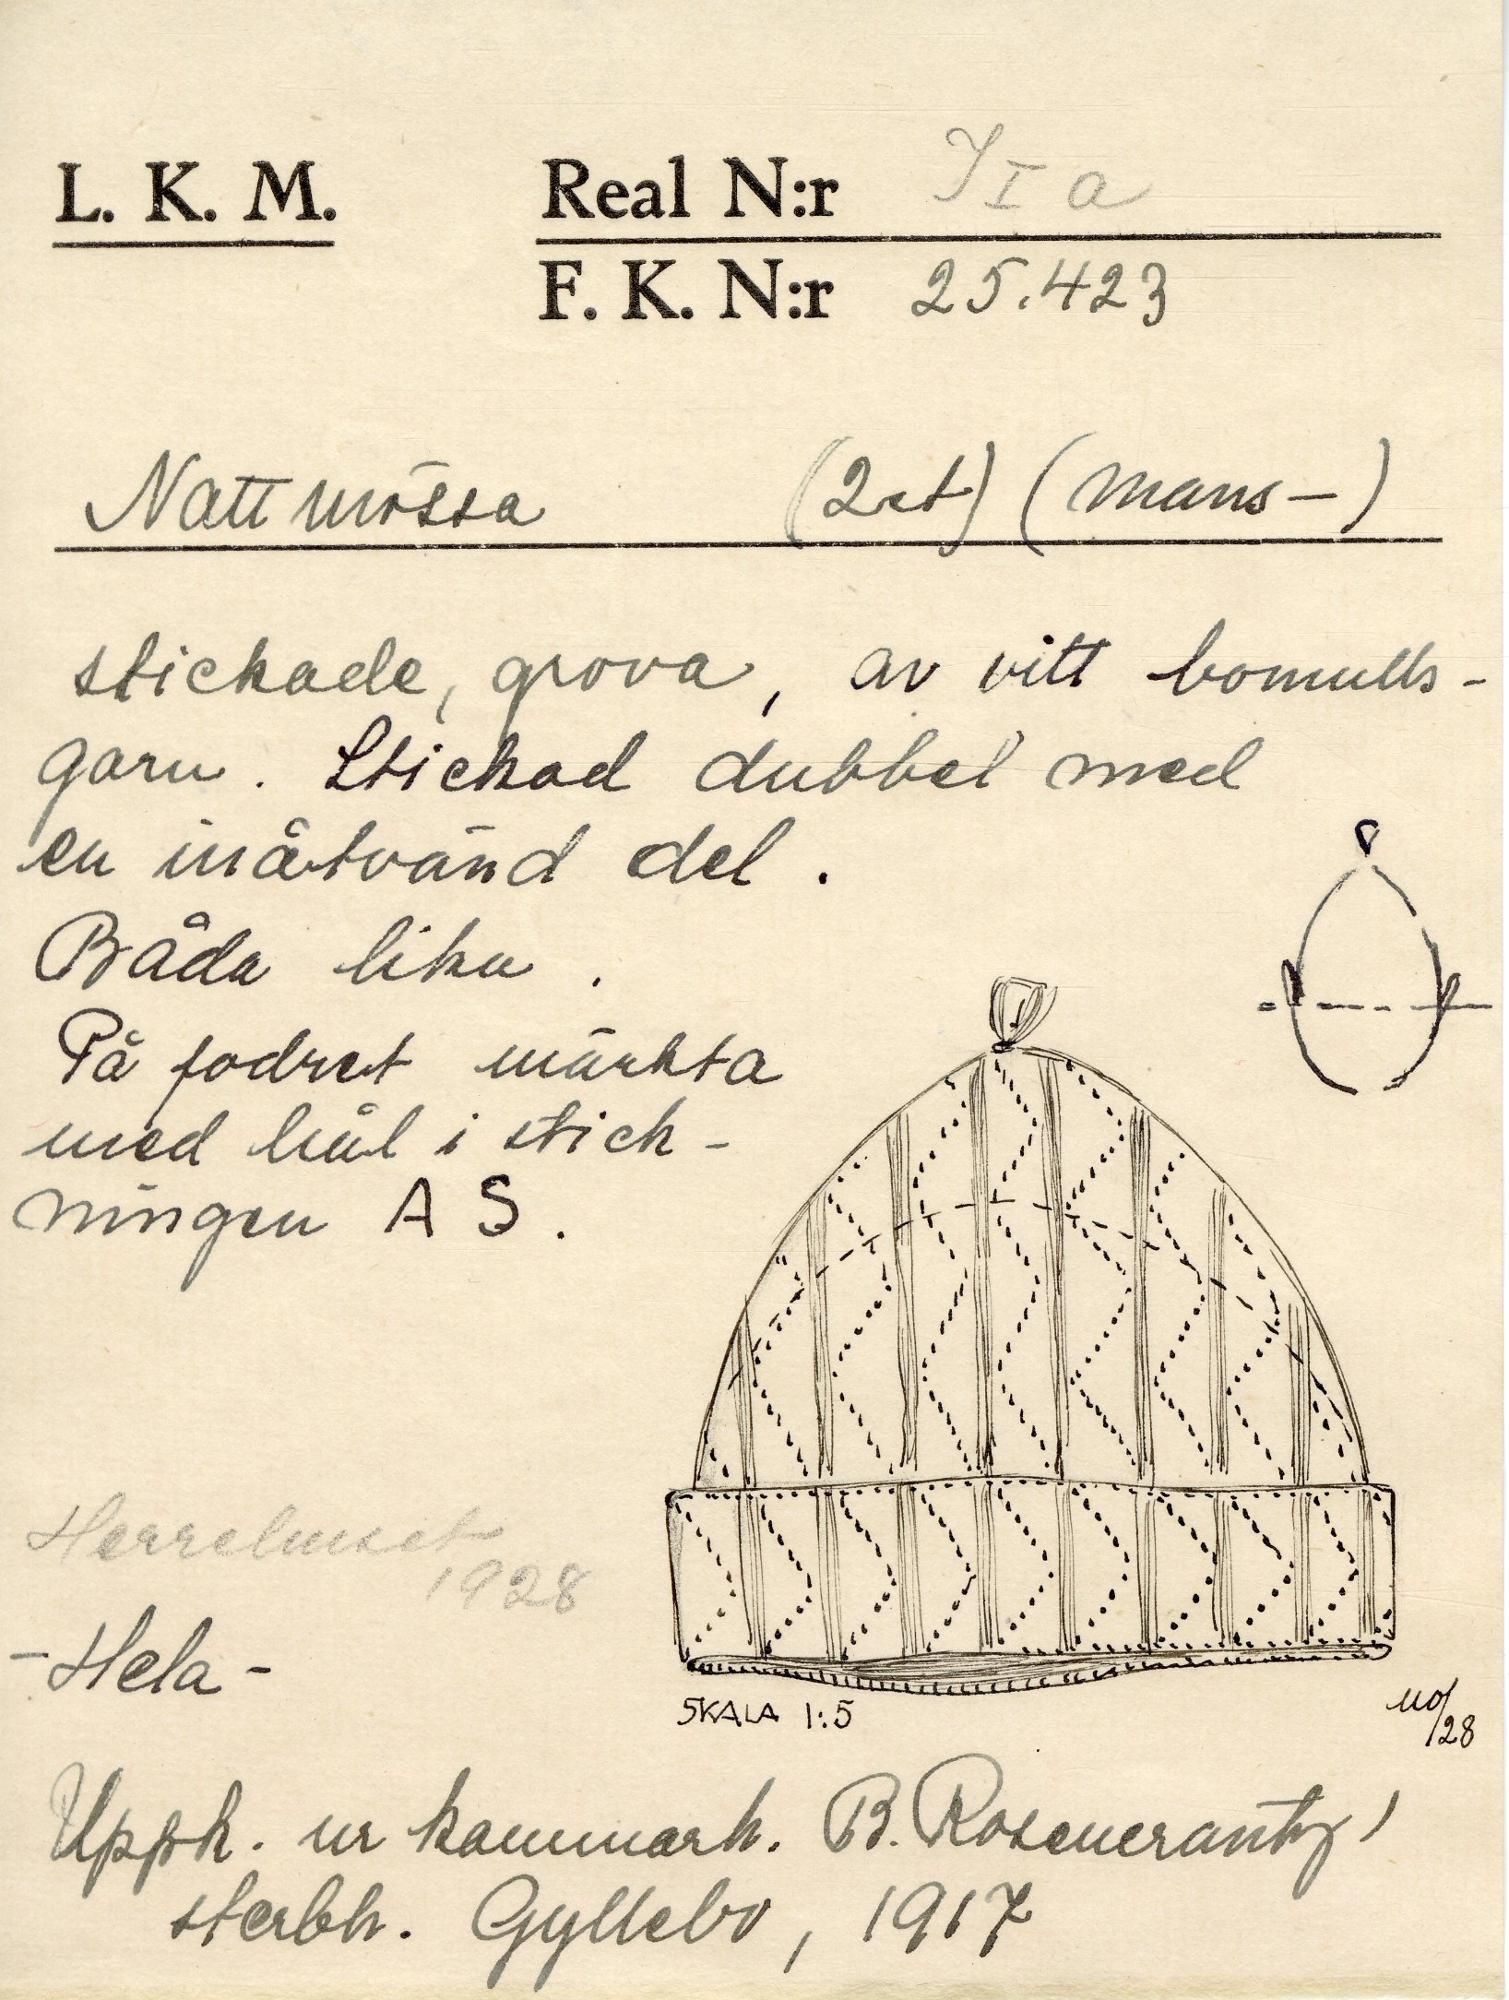 L. K. M.
Real N:r I a
F. K. N:r 25.423
Nattmössa (2st) (mans-)
stickade, grova, av vitt bomulls-
garn. Stickad dubbel med
en inåtvänd del.
Båda lika.
På fodret märkta
med hål i stick-
ningen A S.
Herrehuset
1928
- Hela -
SKALA 1:5
/28
Uppk. ur kammarh. B. Rosencrantz'
sterbh. Gyllebo, 1917